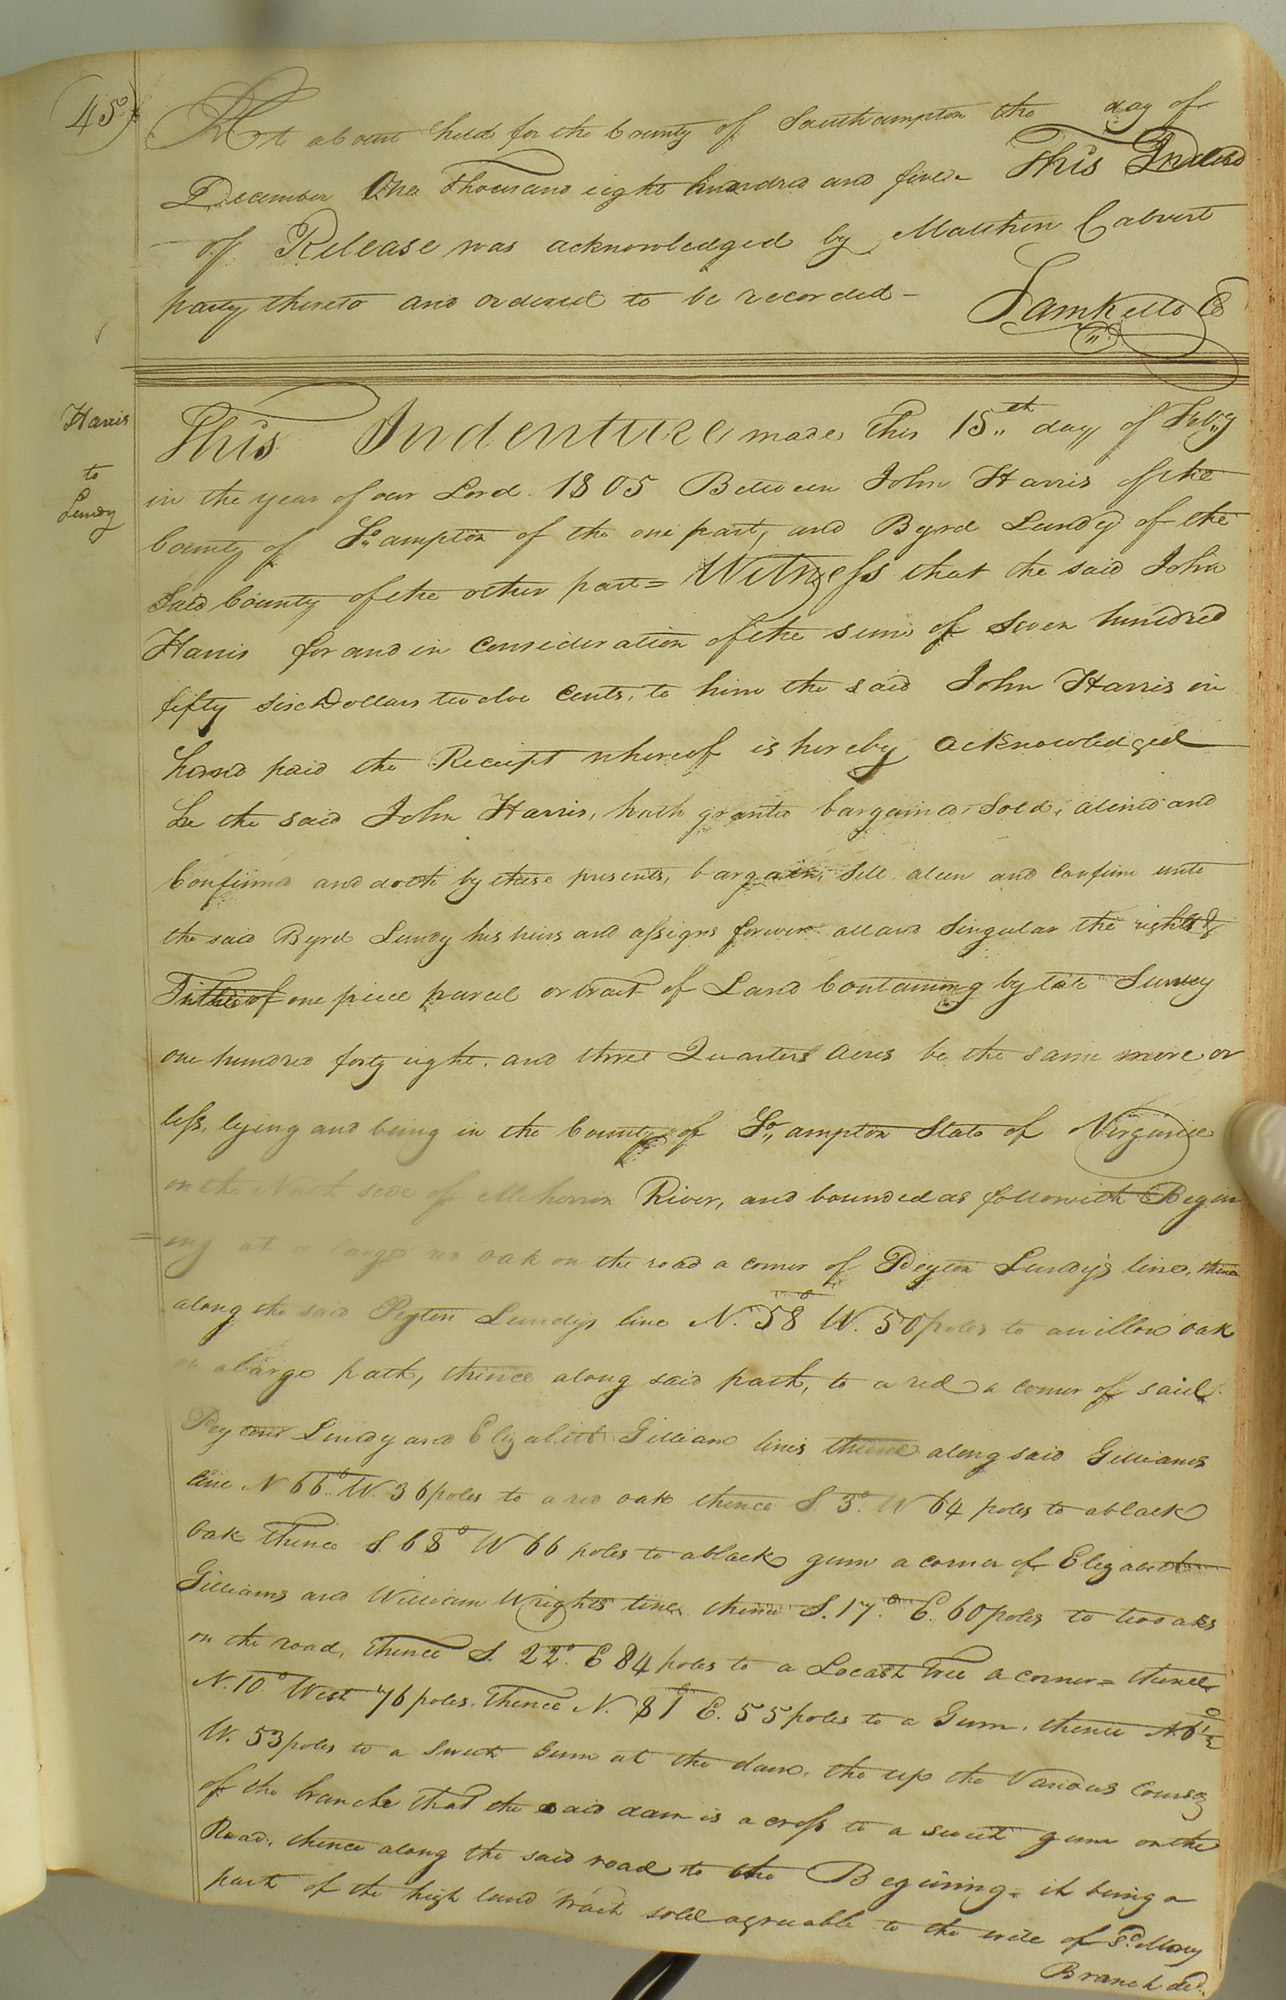 (45)
At a Court held for the County of Southampton the day of
December One Thousand eight hundred and five - This Indend
of Release was acknowledged by Matthew Calvert
party thereto and ordered to be recorded -
Sam Kello C
Harris
to
Lundy
This Indenture made This 15th day of Feb,,y
in the year of our Lord 1805 Between John Harris of the
County of So,,ampton of the one part, and Byrd Lundy of the
Said County of the other part = Witness that the said John
Harris for and in consideration of the sum of Seven hundred
fifty six Dollars twelve Cents, to him the said John Harris in
hand paid the Receipt whereof is hereby acknowledged
he the said John Harris, hath granted bargained, Sold, aliend and
Confirmd and doth by these presents, bargain, Sell alien and confirm unto
the said Byrd Lundy his heirs and assigns forever all and Singular the rights &
Title of one piece parcel or tract of Land Containing by late Survey
one hundred forty eight and three Quarters Acres be the same more or
less, lying and being in the County of So,,ampton State of Virginia
on the North side of Meherrin River, and bounded as followith Begin
=ing at a large red oak on the road a corner of Peyton Lundy's line, thence
along the said Peyton Lundys line N. 58° W. 50 poles to a willow oak
on a large path, thence along said path, to a red a corner of said
Peytons Lundy and Elizabeth Gilliam lines thence along said Gilliams
line N 66° W. 36 poles to a red oak thence S. 3° W 64 poles to a black
oak thence S. 68° W 66 poles to a black gum a corner of Elizabeth
Gilliams and William Wrights line thence S. 17° E. 60 poles to two oaks
on the road, thence S. 22° E 84 poles to a Locast Tree a corner = thence
N. 10° West 76 poles. Thence N. 81° E. 55 poles to a Gum, thence N. 6½°
W. 53 poles to a Sweet Gum at the dam, the up the Various Courses
of the branch that the said dam is a cross to a sweet gum on the
Road, thence along the said road to the Begining = it being a
part of the high land tract sold agreable to the will of Sd. Mary
Branch decd.